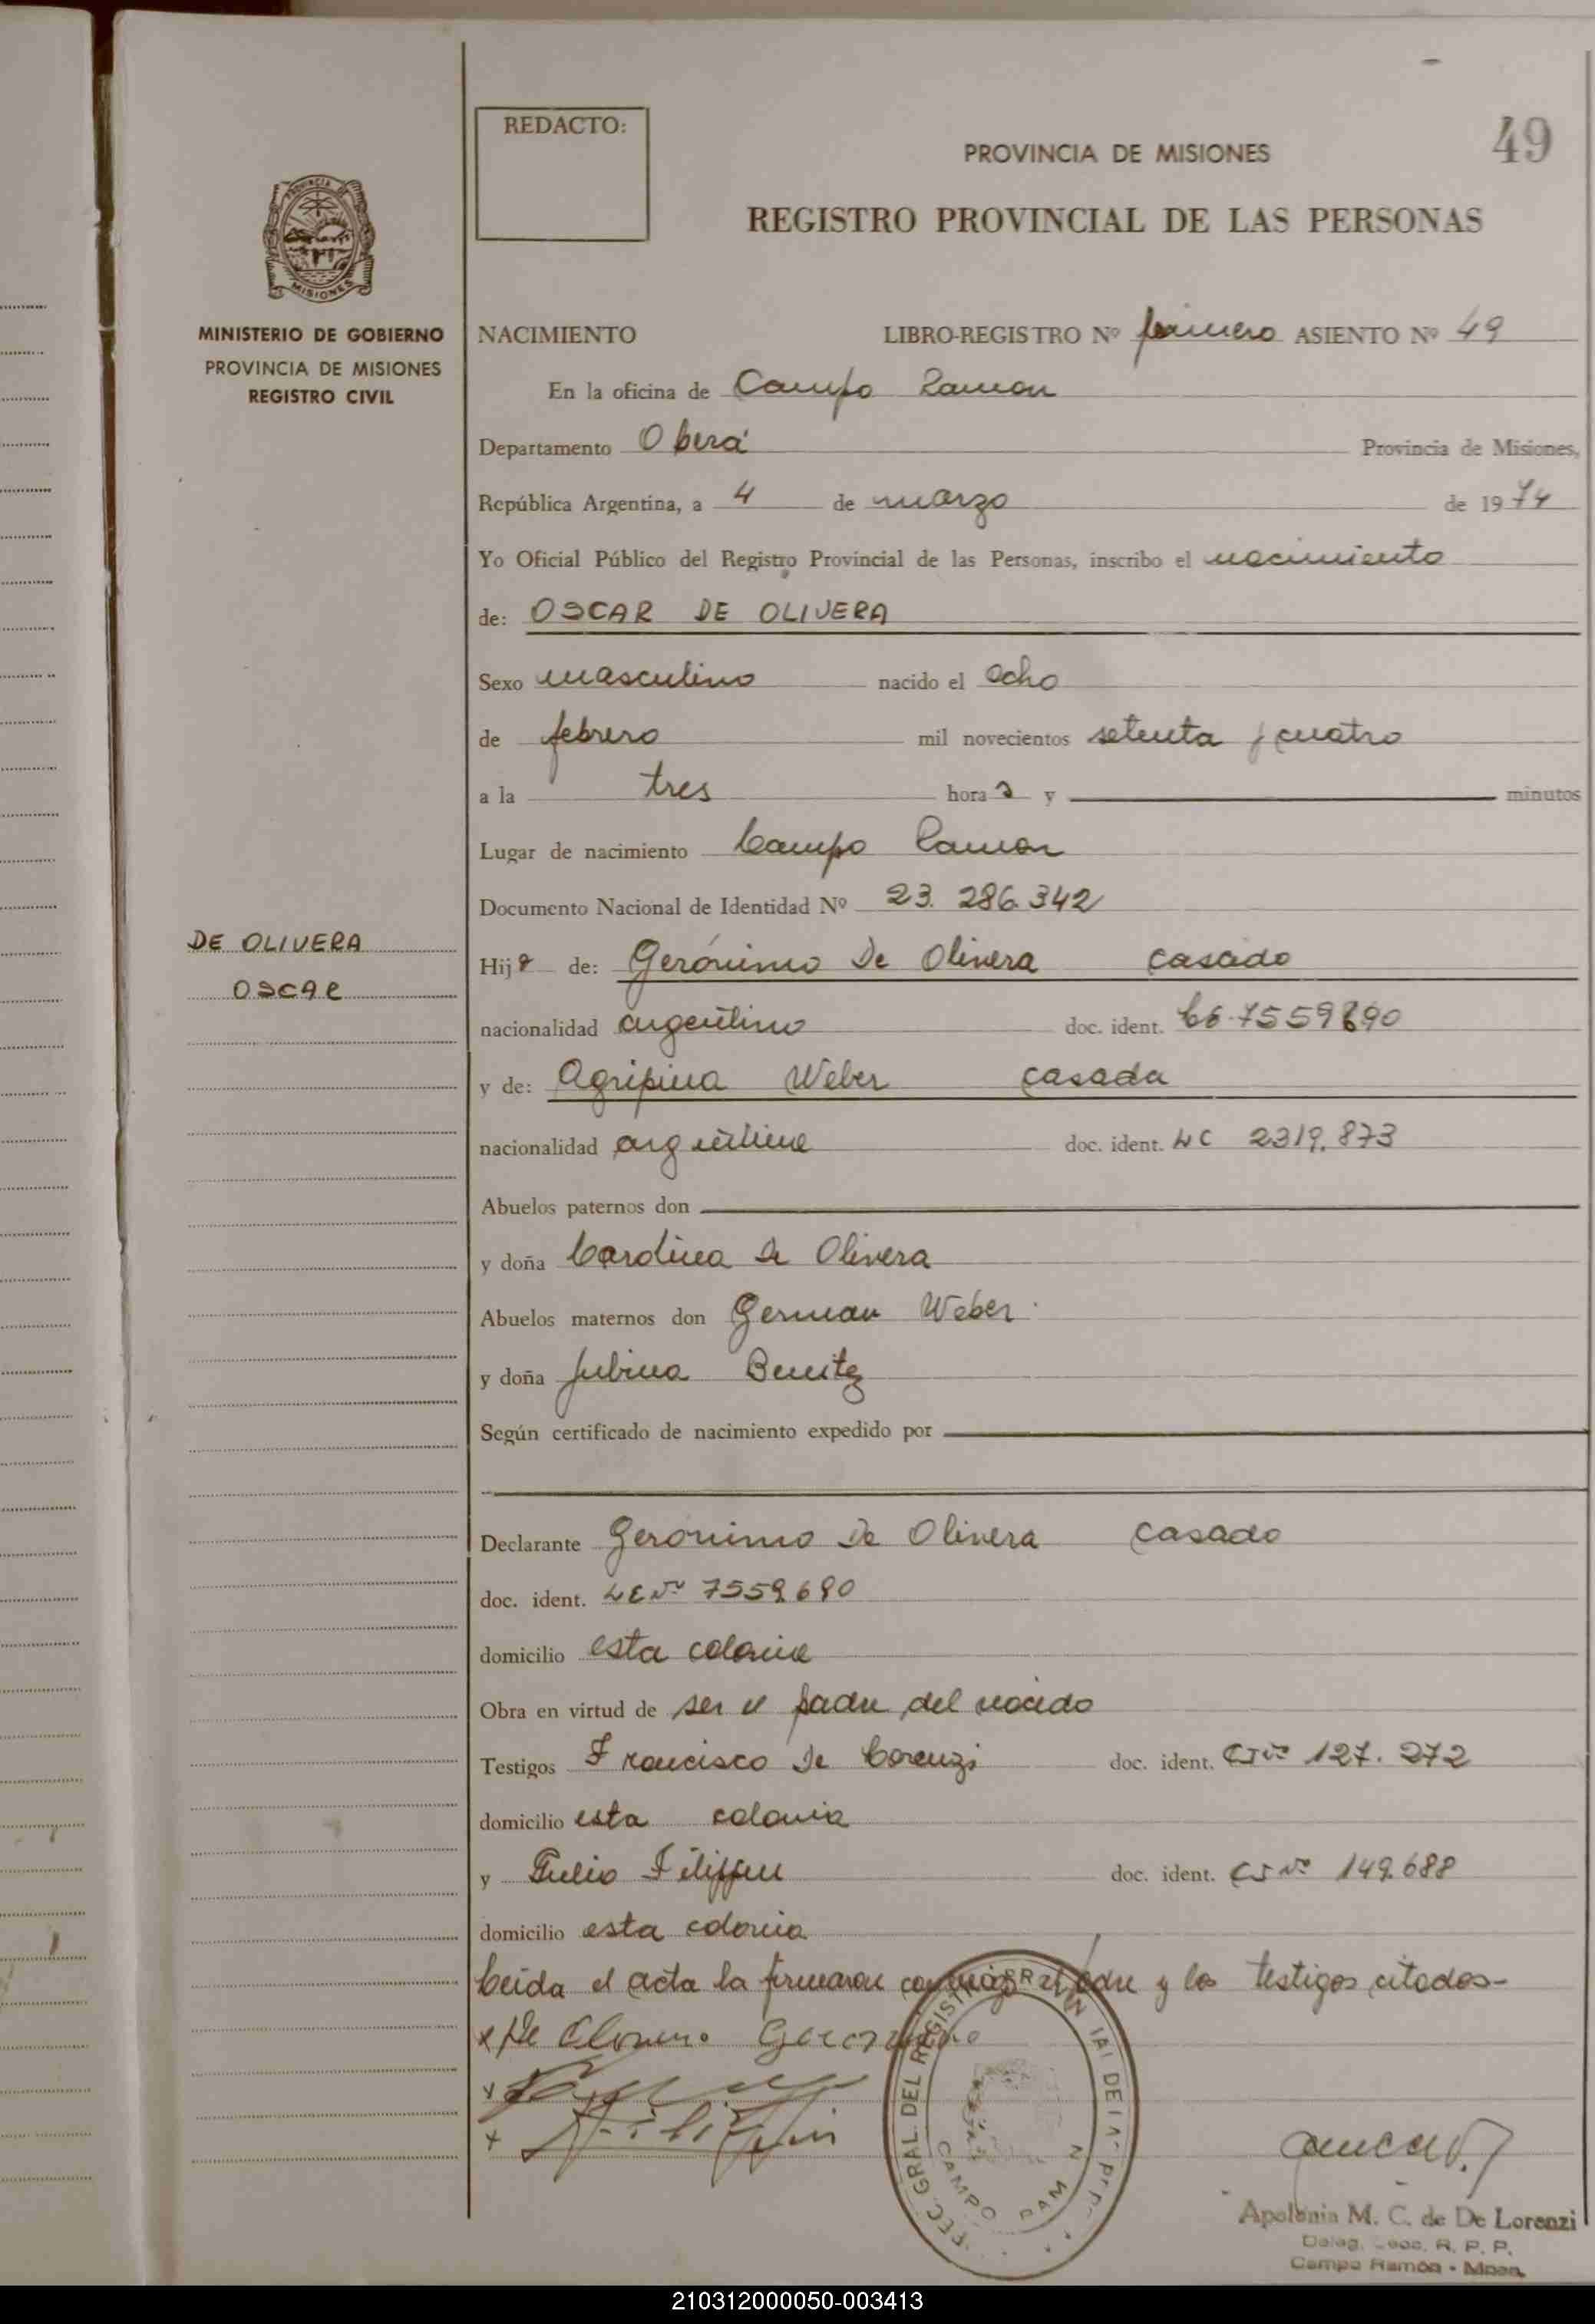 REDACTO:
PROVINCIA DE MISIONES
49
REGISTRO PROVINCIAL DE LAS PERSONAS
PROVINCIA DE
MISIONES
MINISTERIO DE GOBIERNO
PROVINCIA DE MISIONES
REGISTRO CIVIL
DE OLIVERA
OSCAR
NACIMIENTO LIBRO-REGISTRO Nº primero ASIENTO Nº 49
En la oficina de Campo Ramon
Departamento Oberá Provincia de Misiones,
República Argentina, a 4 de marzo de 1974
Yo Oficial Público del Registro Provincial de las Personas, inscribo el nacimiento
de: OSCAR DE OLIVERA
Sexo masculino nacido el ocho
de febrero mil novecientos setenta y cuatro
a la tres horas y minutos
Lugar de nacimiento Campo Ramon
Documento Nacional de Identidad Nº 23.286.342
Hijo de: Gerónimo De Olivera casado
nacionalidad argentino doc. ident.
y de: Agripina Weber casada
nacionalidad argentina doc. ident. LC 2319.873
Abuelos paternos don
y doña Carolina de Olivera
Abuelos maternos don German Weber
y doña Benitez
Según certificado de nacimiento expedido por
Declarante Gerónimo De Olivera casado
doc. ident. LE Nº 7559.690
domicilio esta colonia
Obra en virtud de ser el padre del nacido
Testigos Francisco De Lorenzi doc. ident. CI Nº 127.272
domicilio esta colonia
y Tulio Filippin doc. ident. CI Nº 149.688
domicilio esta colonia
Leida el acta la firmaron conmigo el padre y los testigos citados-
x De Geronimo
x
x Filippin
CAMPO
Apolonia M. C. de De Lorenzi
Deleg. R. P. P.
Campo Ramón - Mnes.
210312000050-003413